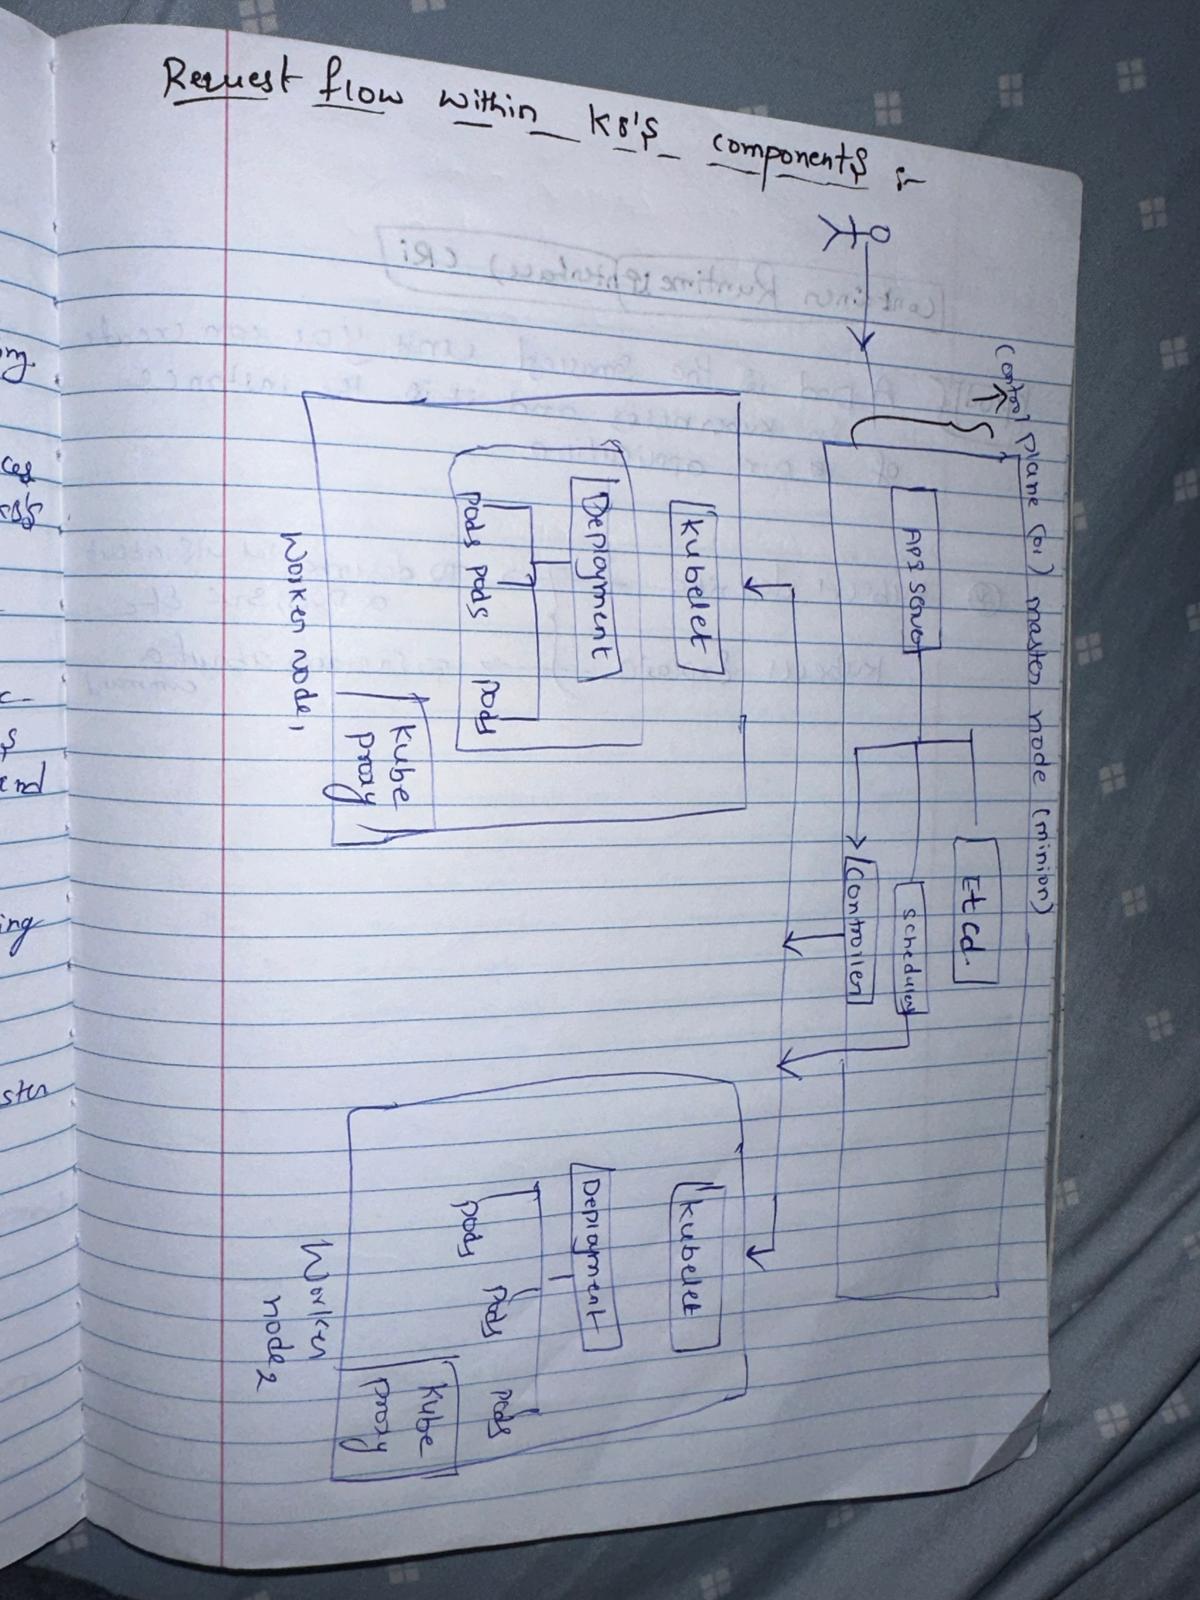 Request flow within K8's components :-
Control plane (or) master node (minion)
Etcd.
API Server
Scheduler
Controller
Kubelet
Deployment
pods pods pods
Kube
proxy
Worker node 1
Kubelet
Deployment
pods pods pods
Kube
proxy
Worker
node 2